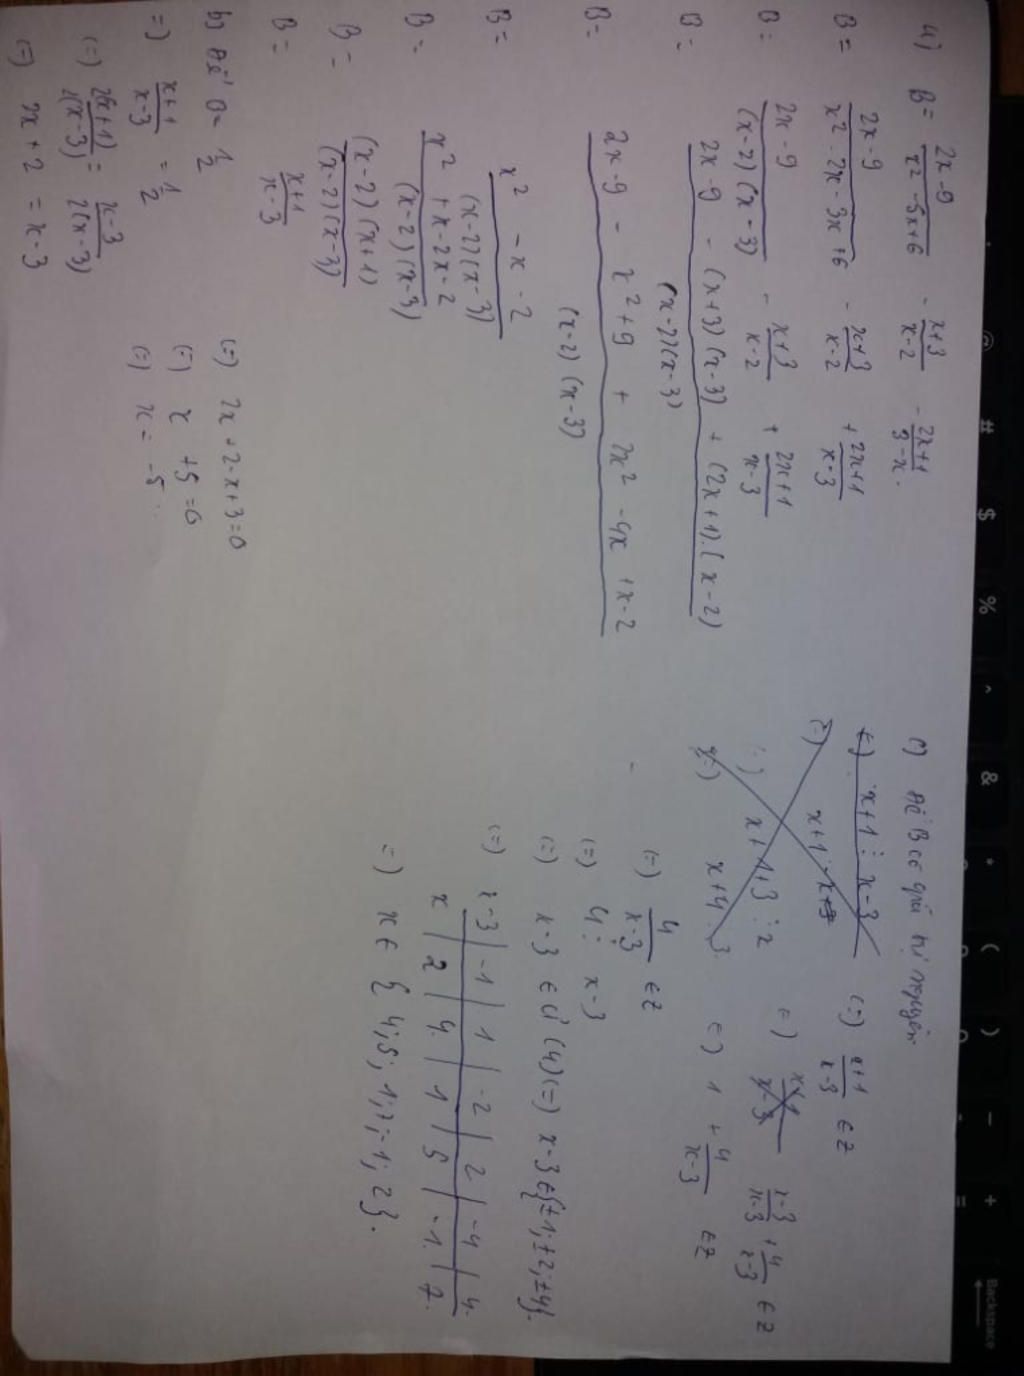 4) B = \frac{2x-9}{x^2-5x+6} - \frac{x+3}{x-2} - \frac{2x+1}{3-x}.
B = \frac{2x-9}{x^2-2x-3x+6} - \frac{x+3}{x-2} + \frac{2x+1}{x-3}
B = \frac{2x-9}{(x-2)(x-3)} - \frac{x+3}{x-2} + \frac{2x+1}{x-3}
B = \frac{2x-9-(x+3)(x-3)+(2x+1).(x-2)}{(x-2)(x-3)}
B = \frac{2x-9-x^2+9+2x^2-4x+x-2}{(x-2)(x-3)}
B = \frac{x^2-x-2}{(x-2)(x-3)}
B = \frac{x^2+x-2x-2}{(x-2)(x-3)}
B = \frac{(x-2)(x+1)}{(x-2)(x-3)}
B = \frac{x+1}{x-3}
b) Để B = \frac{1}{2}
=) \frac{x+1}{x-3} = \frac{1}{2}
(=) \frac{2(x+1)}{2(x-3)} = \frac{x-3}{2(x-3)}
(=) 2x+2 = x-3
(=) 2x+2-x+3=0
(=) x+5=0
(=) x=-5
c) Để B có giá trị nguyên
x+1 ⋮ x-3
x+1+3 ⋮ 2
x+4
(=) \frac{x+1}{x-3} ∈ Z
\frac{x-3}{x-3} + \frac{4}{x-3} ∈ Z
(=) 1 + \frac{4}{x-3} ∈ Z
(=) \frac{4}{x-3} ∈ Z
(=) 4 ⋮ x-3
(=) x-3 ∈ Ư(4) (=) x-3 ∈ {±1; ±2; ±4}.
(=) x-3 | -1 | 1 | -2 | 2 | -4 | 4.
x | 2 | 4 | 1 | 5 | -1. | 7.
=) x ∈ {4; 5; 1; 7; -1; 2}.
@ # $ % ^ & * ( ) - + =
Backspace